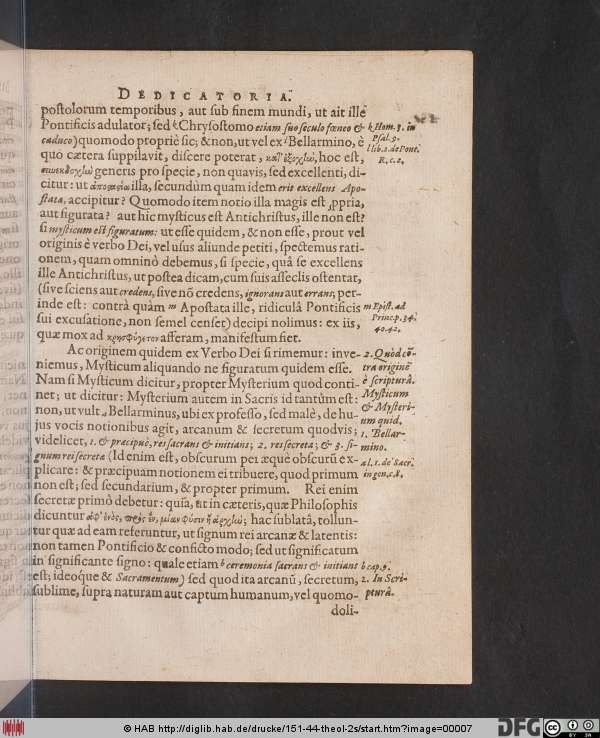 DEDICATORIA.
postolorum temporibus, aut sub finem mundi, ut ait ille
Pontificis adulator; sed k Chrysostomo etiam suo seculo fœneo &
caduco) quomodo propriè sic; & non, ut vel ex l Bellarmino, è
quo cætera suppilavit, discere poterat, κατ' ἐξοχλὼ, hoc est,
συνεκδοχλὼ generis pro specie, non quavis, sed excellenti, di-
citur: ut ἀποστασία illa, secundùm quam idem erit excellens Apo-
stata, accipitur? Quomodo item notio illa magis est ꝓpria,
aut figurata? aut hic mysticus est Antichristus, ille non est?
si mysticum est figuratum: ut esse quidem, & non esse, prout vel
originis è verbo Dei, vel usus aliunde petiti, spectemus rati-
onem, quam omninò debemus, si specie, quâ se excellens
ille Antichristus, ut postea dicam, cum suis asseclis ostentat,
(sive sciens aut credens, sive nō credens, ignorans aut errans; per-
inde est: contrà quàm m Apostata ille, ridiculâ Pontificis
sui excusatione, non semel censet) decipi nolimus: ex iis,
quæ mox ad κρησφύγετον afferam, manifestum fiet.
Ac originem quidem ex Verbo Dei si rimemur: inve-
niemus, Mysticum aliquando ne figuratum quidem esse.
Nam si Mysticum dicitur, propter Mysterium quod conti-
net; ut dicitur: Mysterium autem in Sacris id tantùm est:
non, ut vult a Bellarminus, ubi ex professo, sed malè, de hu-
jus vocis notionibus agit, arcanum & secretum quodvis;
videlicet, 1. & præcipuè, rei sacrans & initians; 2. rei secreta; & 3. si-
gnum rei secreta (Id enim est, obscurum per æquè obscurū ex-
plicare: & præcipuam notionem ei tribuere, quod primum
non est; sed secundarium, & propter primum. Rei enim
secretæ primò debetur: quia, ut in cæteris, quæ Philosophis
dicuntur ἀφ' ἑνὸς, πρὸς ἓν, μίαν φύσιν ἢ ἀρχλὼ; hac sublatâ, tollun-
tur quæ ad eam referuntur, ut signum rei arcanæ & latentis:
non tamen Pontificio & conficto modo; sed ut significatum
in significante signo: quale etiam b ceremonia sacrans & initians
est; ideoq́ue & Sacramentum) sed quod ita arcanū, secretum,
sublime, supra naturam aut captum humanum, vel quomo-
doli-
k Hom. 3. in
Psal. 9.
l lib. 2. de Pont.
R. c. 2.
m Epist. ad
Princ. p. 34.
40. 42.
2. Quòd cō-
tra originē
è scripturâ.
Mysticum
& Mysteri-
um quid.
1. Bellar-
mino.
a l. 1. de Sacr.
in gen. c. 8.
b cap. 9.
2. In Scri-
pturâ.
© HAB http://diglib.hab.de/drucke/151-44-theol-2s/start.htm?image=00007
DFG
CC
BY SA